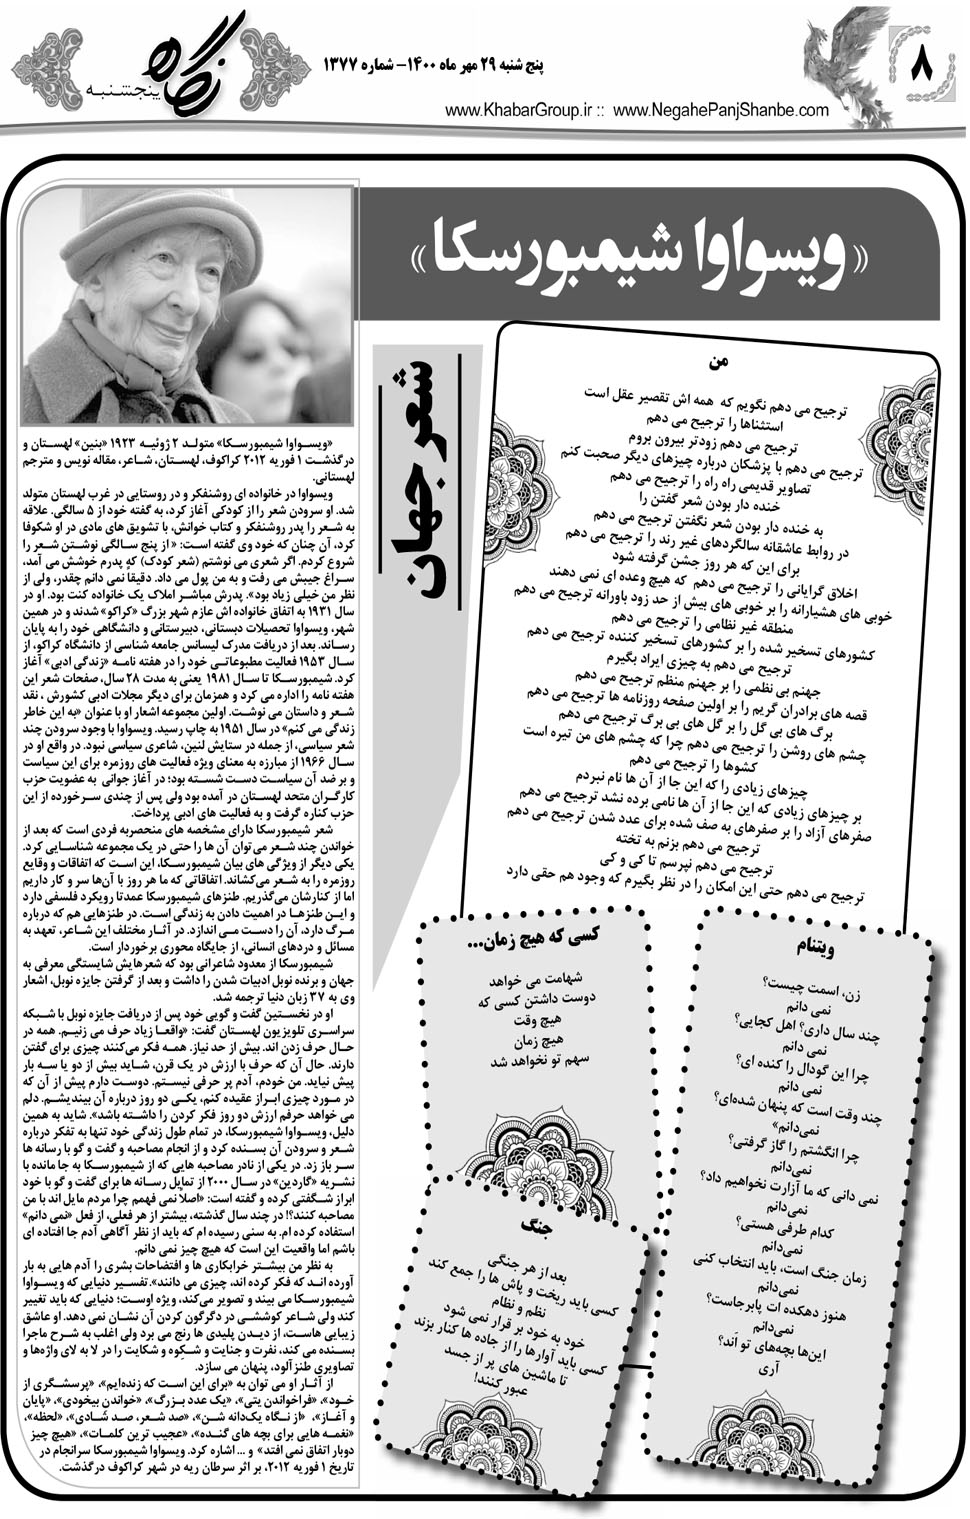 ۸
پنج شنبه ۲۹ مهر ماه ۱۴۰۰- شماره ۱۳۷۷
www.KhabarGroup.ir :: www.NegahePanjShanbe.com
نگاه
پنجشنبه
«ویسواوا شیمبورسکا»
شعر جهان
من
ترجیح می دهم نگویم که همه اش تقصیر عقل است
استثناها را ترجیح می دهم
ترجیح می دهم زودتر بیرون بروم
ترجیح می دهم با پزشکان درباره چیزهای دیگر صحبت کنم
تصاویر قدیمی راه راه را ترجیح می دهم
خنده دار بودن شعر گفتن را
به خنده دار بودن شعر نگفتن ترجیح می دهم
در روابط عاشقانه سالگردهای غیر رند را ترجیح می دهم
برای این که هر روز جشن گرفته شود
اخلاق گرایانی را ترجیح می دهم که هیچ وعده ای نمی دهند
خوبی های هشیارانه را بر خوبی های بیش از حد زود باورانه ترجیح می دهم
منطقه غیر نظامی را ترجیح می دهم
کشورهای تسخیر شده را بر کشورهای تسخیر کننده ترجیح می دهم
ترجیح می دهم به چیزی ایراد بگیرم
جهنم بی نظمی را بر جهنم منظم ترجیح می دهم
قصه های برادران گریم را بر اولین صفحه روزنامه ها ترجیح می دهم
برگ های بی گل را بر گل های بی برگ ترجیح می دهم
چشم های روشن را ترجیح می دهم چرا که چشم های من تیره است
کشوها را ترجیح می دهم
چیزهای زیادی را که این جا از آن ها نام نبردم
بر چیزهای زیادی که این جا از آن ها نامی برده نشد ترجیح می دهم
صفرهای آزاد را بر صفرهای به صف شده برای عدد شدن ترجیح می دهم
ترجیح می دهم بزنم به تخته
ترجیح می دهم نپرسم تا کی و کی
ترجیح می دهم حتی این امکان را در نظر بگیرم که وجود هم حقی دارد
ویتنام
زن، اسمت چیست؟
نمی دانم
چند سال داری؟ اهل کجایی؟
نمی دانم
چرا این گودال را کنده ای؟
نمی دانم
چند وقت است که پنهان شده‌ای؟
نمی‌دانم»
چرا انگشتم را گاز گرفتی؟
نمی‌دانم
نمی دانی که ما آزارت نخواهیم داد؟
نمی‌دانم
کدام طرفی هستی؟
نمی‌دانم
زمان جنگ است، باید انتخاب کنی
نمی‌دانم
هنوز دهکده ات پابرجاست؟
نمی‌دانم
این‌ها بچه‌های تو اَند؟
آری
کسی که هیچ زمان...
شهامت می خواهد
دوست داشتن کسی که
هیچ وقت
هیچ زمان
سهم تو نخواهد شد
جنگ
بعد از هر جنگی
کسی باید ریخت و پاش ها را جمع کند
نظم و نظام
خود به خود بر قرار نمی شود
کسی باید آوارها را از جاده ها کنار بزند
تا ماشین های پر از جسد
عبور کنند!
«ویسواوا شیمبورسکا» متولد ۲ ژوئیه ۱۹۲۳ «بنین» لهستان و
درگذشت ۱ فوریه ۲۰۱۲ کراکوف، لهستان، شاعر، مقاله نویس و مترجم
لهستانی.
ویسواوا در خانواده ای روشنفکر و در روستایی در غرب لهستان متولد
شد. او سرودن شعر را از کودکی آغاز کرد، به گفته خود از ۵ سالگی. علاقه
به شعر را پدر روشنفکر و کتاب خوانش، با تشویق های مادی در او شکوفا
کرد، آن چنان که خود وی گفته است: «از پنج سالگی نوشتن شعر را
شروع کردم. اگر شعری می نوشتم (شعر کودک) که پدرم خوشش می آمد،
سراغ جیبش می رفت و به من پول می داد. دقیقا نمی دانم چقدر، ولی از
نظر من خیلی زیاد بود». پدرش مباشر املاک یک خانواده کنت بود. او در
سال ۱۹۳۱ به اتفاق خانواده اش عازم شهر بزرگ «کراکو» شدند و در همین
شهر، ویسواوا تحصیلات دبستانی، دبیرستانی و دانشگاهی خود را به پایان
رساند. بعد از دریافت مدرک لیسانس جامعه شناسی از دانشگاه کراکو، از
سال ۱۹۵۳ فعالیت مطبوعاتی خود را در هفته نامه «زندگی ادبی» آغاز
کرد. شیمبورسکا تا سال ۱۹۸۱ یعنی به مدت ۲۸ سال، صفحات شعر این
هفته نامه را اداره می کرد و همزمان برای دیگر مجلات ادبی کشورش ، نقد
شعر و داستان می نوشت. اولین مجموعه اشعار او با عنوان «به این خاطر
زندگی می کنم» در سال ۱۹۵۱ به چاپ رسید. ویسواوا با وجود سرودن چند
شعر سیاسی، از جمله در ستایش لنین، شاعری سیاسی نبود. در واقع او در
سال ۱۹۶۶ از مبارزه به معنای ویژه فعالیت های روزمره برای این سیاست
و بر ضد آن سیاست دست شسته بود؛ در آغاز جوانی به عضویت حزب
کارگران متحد لهستان در آمده بود ولی پس از چندی سرخورده از این
حزب کناره گرفت و به فعالیت های ادبی پرداخت.
شعر شیمبورسکا دارای مشخصه های منحصربه فردی است که بعد از
خواندن چند شعر می‌توان آن ها را حتی در یک مجموعه شناسایی کرد.
یکی دیگر از ویژگی های بیان شیمبورسکا، این است که اتفاقات و وقایع
روزمره را به شعر می‌کشاند. اتفاقاتی که ما هر روز با آن‌ها سر و کار داریم
اما از کنارشان می‌گذریم. طنزهای شیمبورسکا عمدتا رویکرد فلسفی دارد
و این طنزها در اهمیت دادن به زندگی است. در طنزهایی هم که درباره
مرگ دارد، آن را دست می اندازد. در آثار مختلف این شاعر، تعهد به
مسائل و دردهای انسانی، از جایگاه محوری برخوردار است.
شیمبورسکا از معدود شاعرانی بود که شعرهایش شایستگی معرفی به
جهان و برنده نوبل ادبیات شدن را داشت و بعد از گرفتن جایزه نوبل، اشعار
وی به ۳۷ زبان دنیا ترجمه شد.
او در نخستین گفت و گویی خود پس از دریافت جایزه نوبل با شبکه
سراسری تلویزیون لهستان گفت: «واقعا زیاد حرف می زنیم. همه در
حال حرف زدن اند. بیش از حد نیاز. همه فکر می‌کنند چیزی برای گفتن
دارند. حال آن که حرف با ارزش در یک قرن، شاید بیش از دو یا سه بار
پیش نیاید. من خودم، آدم پر حرفی نیستم. دوست دارم پیش از آن که
در مورد چیزی ابراز عقیده کنم، یکی دو روز درباره آن بیندیشم. دلم
می خواهد حرفم ارزش دو روز فکر کردن را داشته باشد». شاید به همین
دلیل، ویسواوا شیمبورسکا، در تمام طول زندگی خود تنها به تفکر درباره
شعر و سرودن آن بسنده کرد و از انجام مصاحبه و گفت و گو با رسانه ها
سر باز زد. در یکی از نادر مصاحبه هایی که از شیمبورسکا به جا مانده با
نشریه «گاردین» در سال ۲۰۰۰ از تمایل رسانه ها برای گفت و گو با خود
ابراز شگفتی کرده و گفته است: «اصلا نمی فهمم چرا مردم مایل اند با من
مصاحبه کنند؟! در چند سال گذشته، بیشتر از هر فعلی، از فعل «نمی دانم»
استفاده کرده ام. به سنی رسیده ام که باید از نظر آگاهی آدم جا افتاده ای
باشم اما واقعیت این است که هیچ چیز نمی دانم.
به نظر من بیشتر خرابکاری ها و افتضاحات بشری را آدم هایی به بار
آورده اند که فکر کرده اند، چیزی می دانند». تفسیر دنیایی که ویسواوا
شیمبورسکا می بیند و تصویر می‌کند، ویژه اوست؛ دنیایی که باید تغییر
کند ولی شاعر کوششی در دگرگون کردن آن نشان نمی دهد. او عاشق
زیبایی هاست، از دیدن پلیدی ها رنج می برد ولی اغلب به شرح ماجرا
بسنده می کند، نفرت و جنایت و شکوه و شکایت را در لا به لای واژه‌ها و
تصاویری طنزآلود، پنهان می سازد.
از آثار او می توان به «برای این است که زنده‌ایم»، «پرسشگری از
خود»، «فراخواندن یتی»، «یک عدد بزرگ»، «خواندن بیخودی»، «پایان
و آغاز»، «از نگاه یک‌دانه شن»، «صد شعر، صد شادی»، «لحظه»،
«نغمه هایی برای بچه های گنده»، «عجیب ترین کلمات»، «هیچ چیز
دوبار اتفاق نمی افتد» و ... اشاره کرد. ویسواوا شیمبورسکا سرانجام در
تاریخ ۱ فوریه ۲۰۱۲، بر اثر سرطان ریه در شهر کراکوف درگذشت.